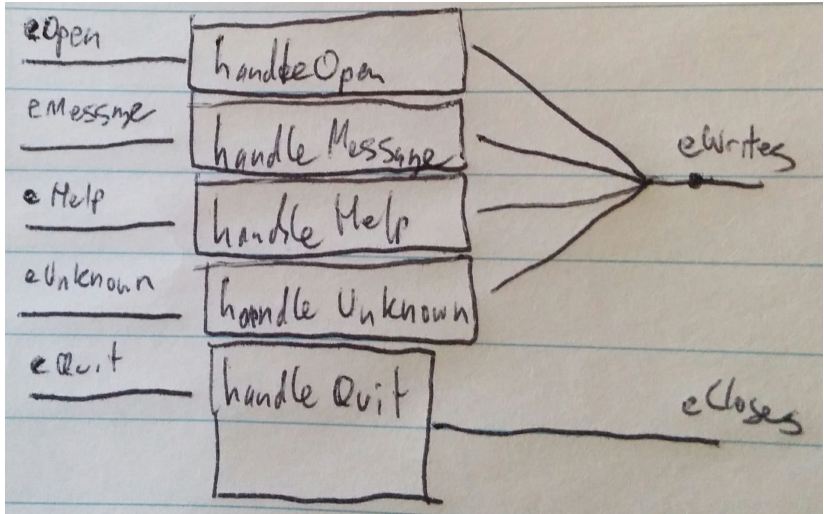 eOpen
handleOpen
eMessage
handle Message
eWrites
eHelp
handle Help
eUnknown
handle Unknown
eQuit
handle Quit
eCloses